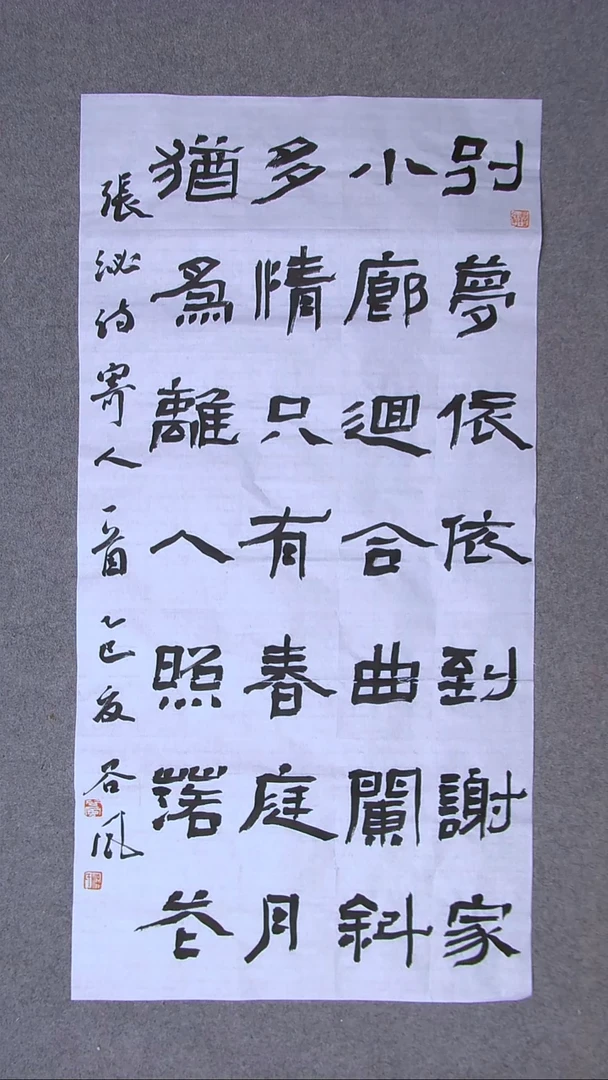 別夢依依到謝家
小廊迴合曲闌斜
多情只有春庭月
猶爲離人照落花
張泌詩寄人一首 乙巳夏 谷風